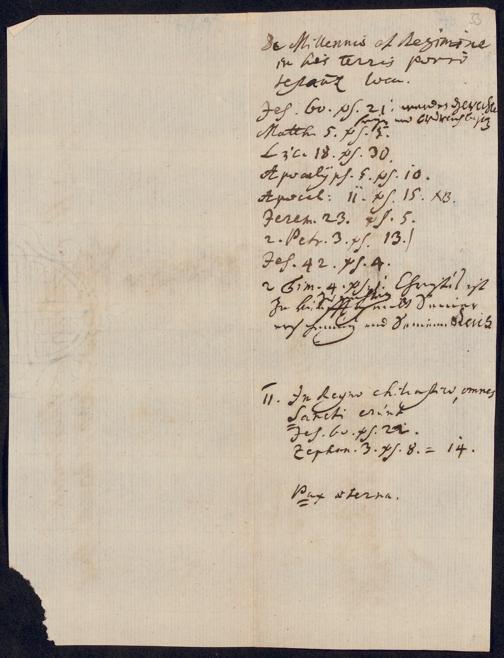 53
De Millennio et Regimine
in his terris porro
loca.
Jes. 60. ps. 21.
Matth. 5. ps. 5.
Luc. 18. ps. 30.
Apocalyps. 5. ps. 10.
Apocal: 11. ps. 15. NB.
Jerem. 23. ps. 5.
2. Petr. 3. ps. 13.
Jes. 42. ps. 4.
2 Tim. 4. ps. 1. Christus ist
Zu
und Seinem Reich
II. In Regno chiliastico, omnes
Sancti erunt
Jes. 60. ps. 21.
Zephan. 3. ps. 8. = 14.
Pax æterna.